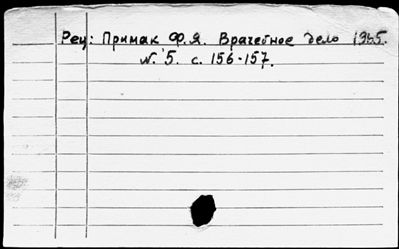 Рец: Примак Ф.Я. Врачебное дело 1965.
N. 5. с. 156-157.